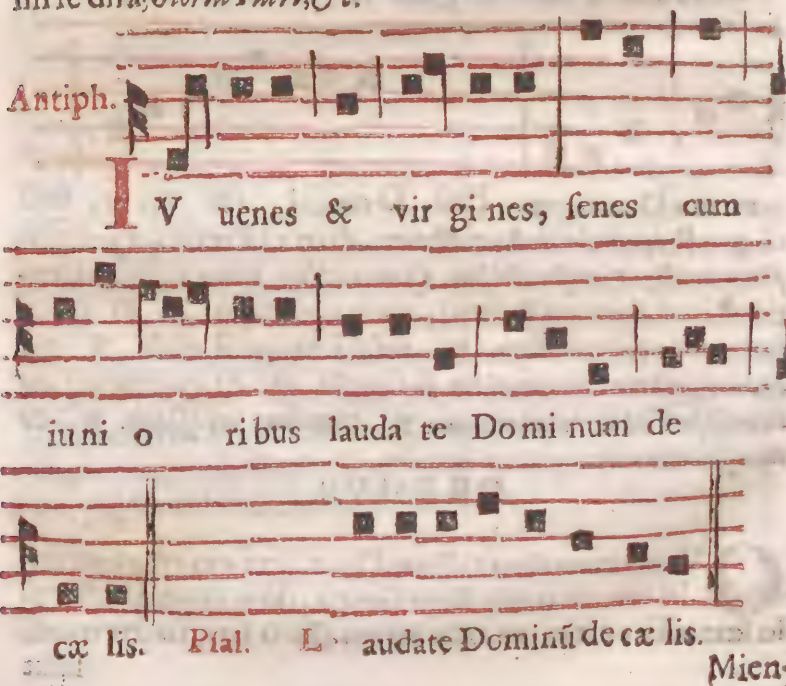 Antiph.
IV uenes & vir gi nes, ſenes cum
iu ni o ri bus lauda te Do mi num de
cæ lis. Pſal. L audate Dominū de cæ lis.
Mien-